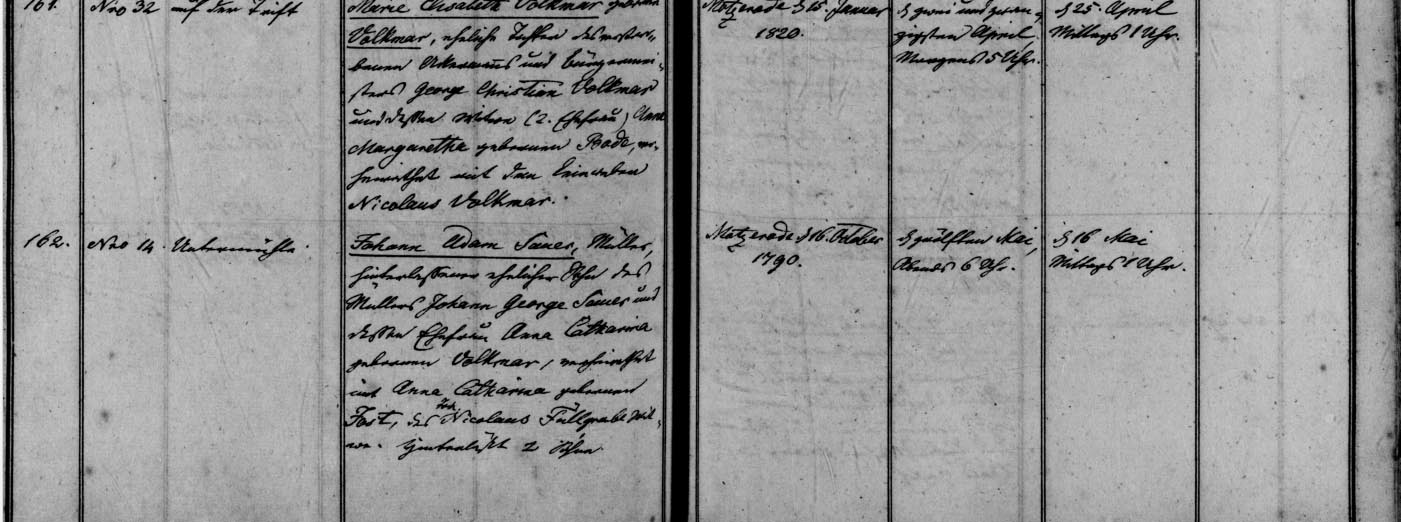 161.
Nro 32 auf der Trift
Marie Elisabeth Volkmar geborne
Volkmar, eheliche Tochter des verstor-
benen Ackermanns und Bürgermei-
sters George Christian Volkmar
und dessen Witwe (2. Ehefrau) Anna
Margaretha gebornen Bode, ver-
heirathet mit dem Leineweber
Nicolaus Volkmar.
Motzerode d 15. Januar
1820.
d zwei und zwan-
zigsten April
Morgens 5 Uhr.
d 25. April
Mittags 1 Uhr.
162.
Nro 14. Untermühle.
Johann Adam Sauer, Müller,
hinterlassener ehelicher Sohn des
Müllers Johann George Sauer und
dessen Ehefrau Anna Catharina
gebornen Volkmar, verheirathet
mit Anna Catharina gebornen
Jost, des Joh. Nicolaus Füllgrabe Wit-
we. Hinterläßt 2 Söhne
Motzerode d 16. October
1790.
d zwölften Mai,
Abends 6 Uhr.
d 16 Mai
Mittags 1 Uhr.